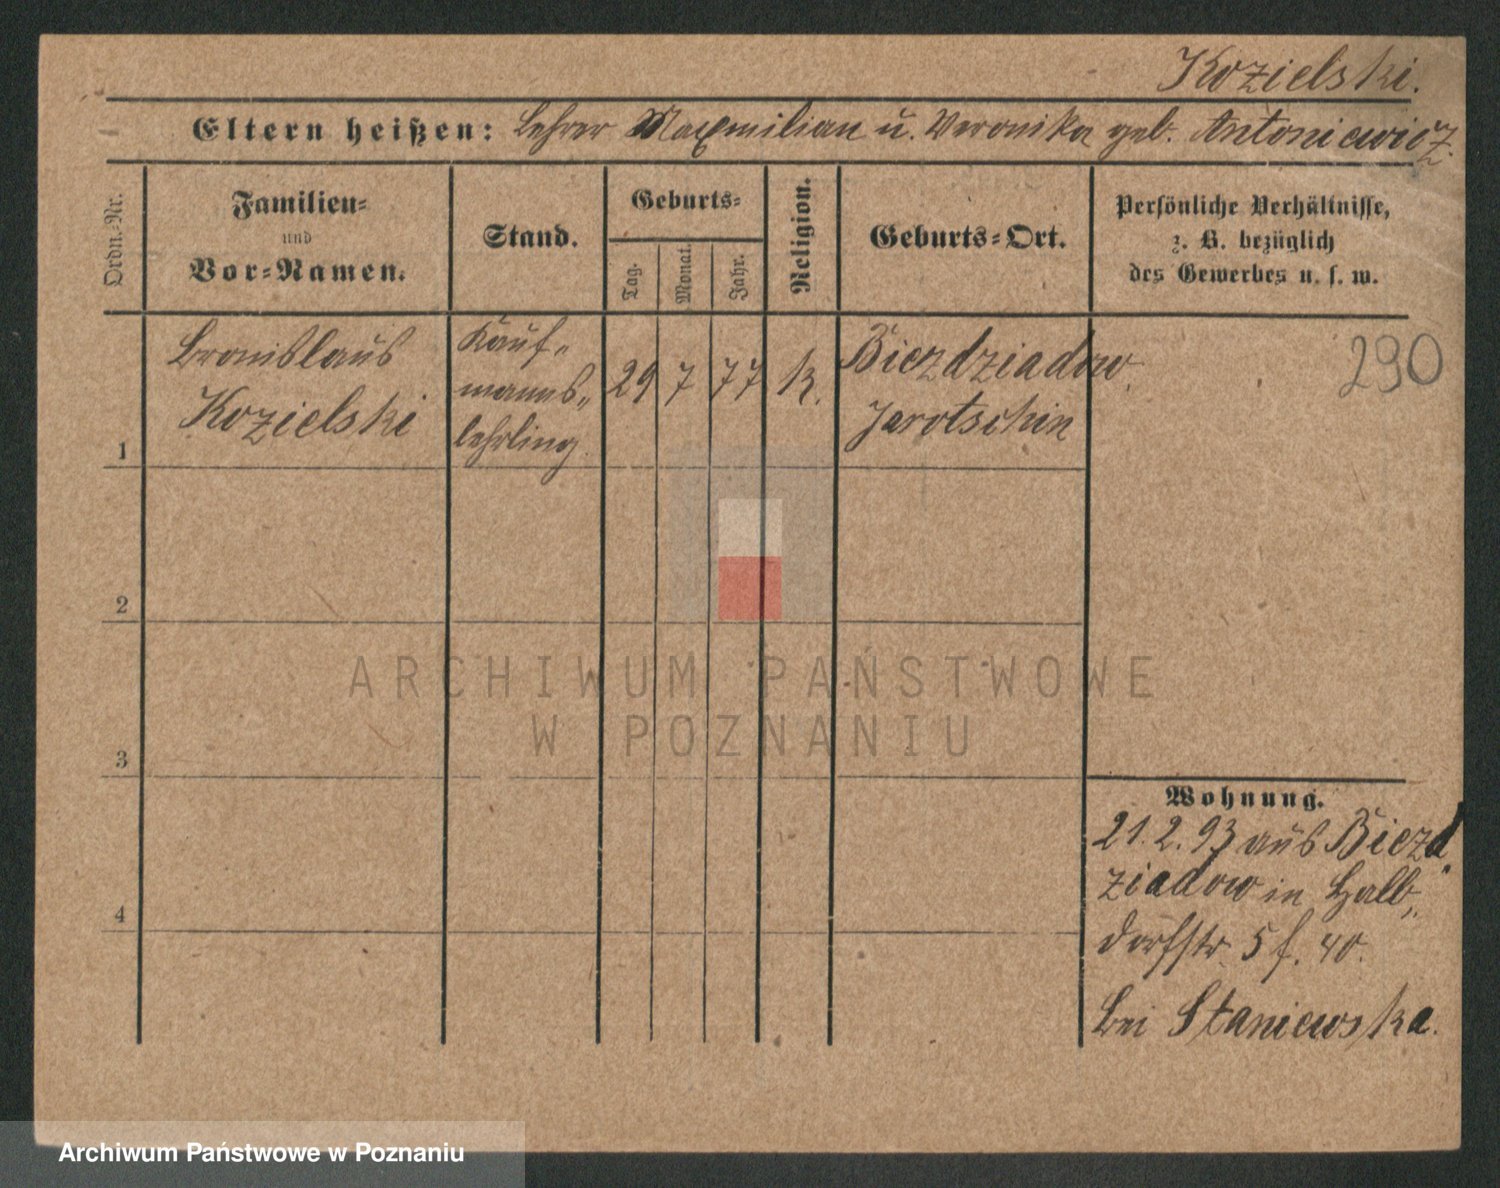 Kozielski.
Eltern heißen: Lehrer Maxmilian u. Veronika geb. Antoniewicz.
Ordn.-Nr.
Familien-
und
Vor-Namen.
Stand.
Geburts-
Tag.
Monat.
Jahr.
Religion.
Geburts-Ort.
Persönliche Verhältnisse,
z. B. bezüglich
des Gewerbes u. s. w.
1
Bronislaus
Kozielski
Kauf-
manns-
lehrling
29
7
77
k.
Biezdziadow.
Jarotschin
290
2
3
4
Wohnung.
21.2.93 aus Biezd-
ziadow in Halb-
dorfstr. 5 f. 40.
bei Staniewska.
ARCHIWUM PAŃSTWOWE
W POZNANIU
Archiwum Państwowe w Poznaniu